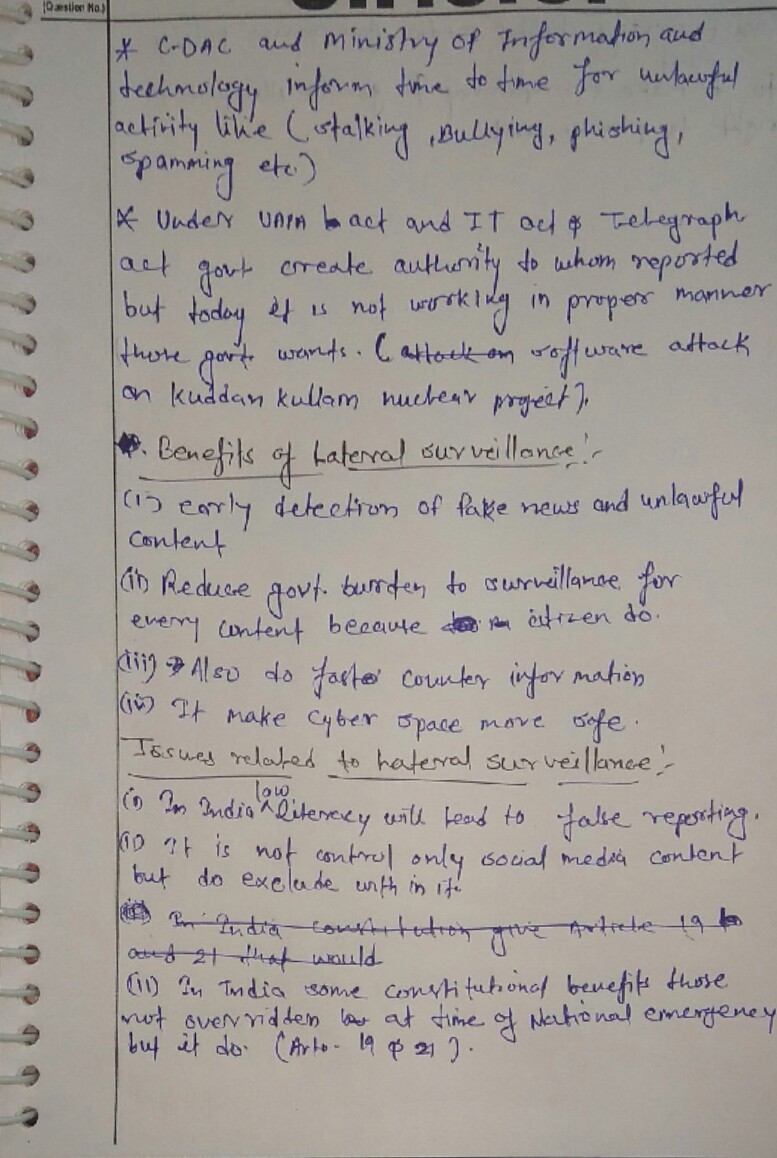 (Question No.)
* C-DAC and Ministry of Information and
technology inform time to time for unlawful
activity like (stalking, Bullying, phishing,
spamming etc.)
* Under UAPA act and IT act & Telegraph
act govt create authority to whom reported
but today it is not working in proper manner
those govt. wants. (attack on software attack
on kuddan kullam nuclear project).
Benefits of Lateral surveillance:-
(i) early detection of fake news and unlawful
content
(ii) Reduce govt. burden to surveillance for
every content because citizen do.
(iii) Also do fast counter information
(iv) It make cyber space more safe.
Issues related to Lateral surveillance:-
(i) In India low literecy will lead to false reporting.
(ii) It is not control only social media content
but do exclude with in it.
In India constitution give Article 19
and 21 that would
(ii) In India some constitutional benefits those
not overridden at time of National emergency
but it do. (Arto- 19 & 21).